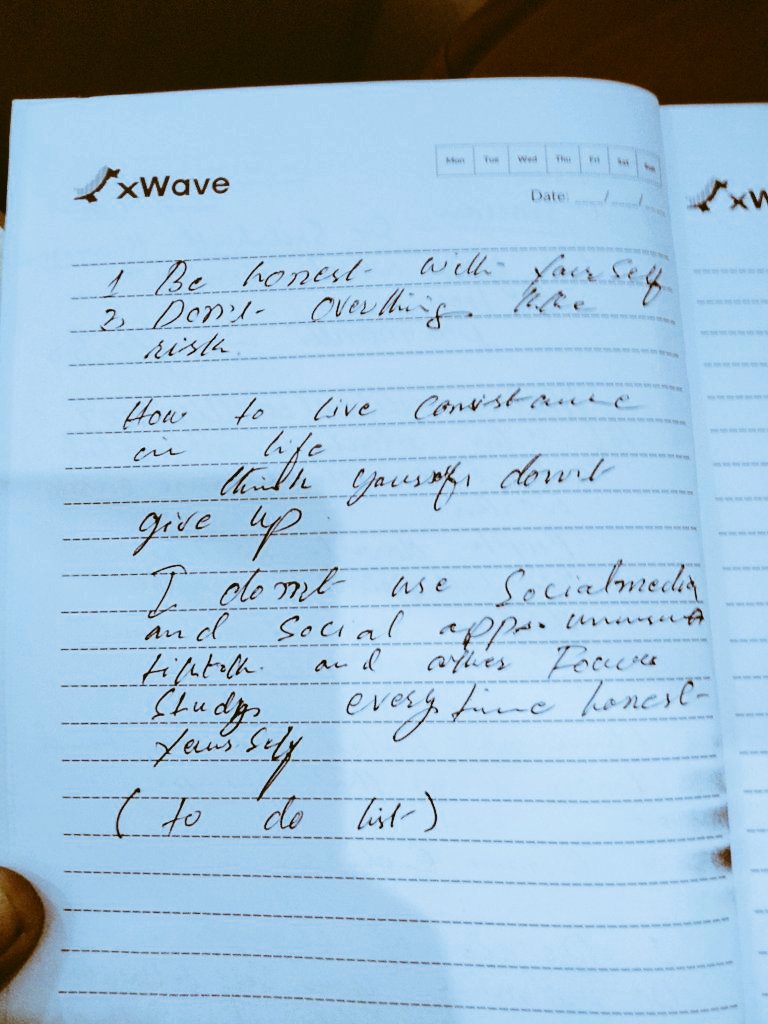 xWave
Mon Tue Wed Thu Fri Sat Sun
Date: / /
xW
1 Be honest with your self
2, Don't overthing. take
risk.
How to live consistance
in life
think yourself don't
give up
I don't use Socialmedia
and social apps.
tiktok. and other Focus
Study every time honest
your self
(to do list)